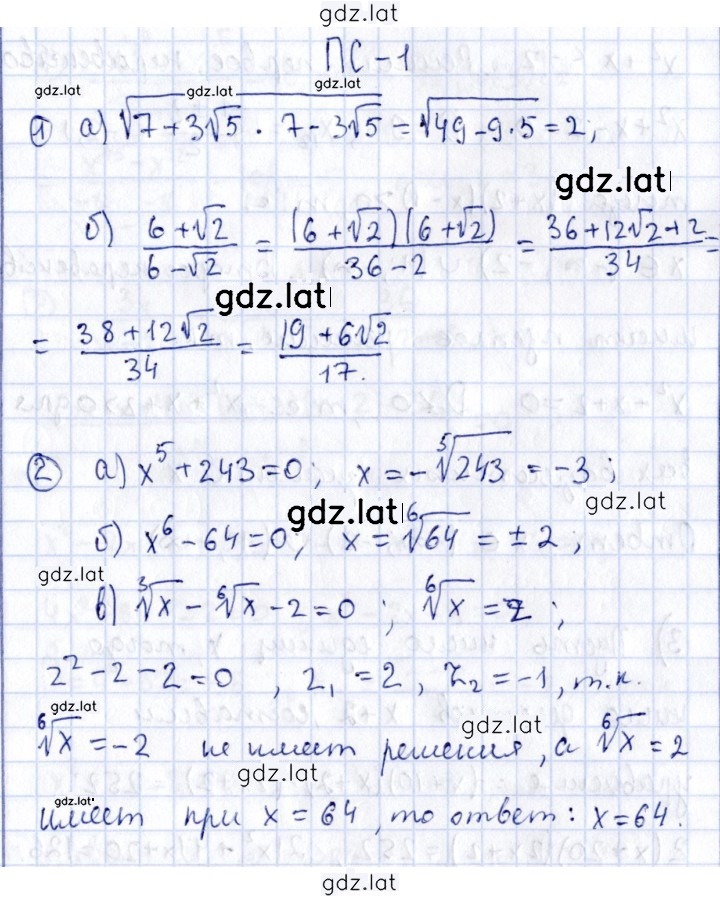 gdz.lat
ПС-1
gdz.lat gdz.lat gdz.lat
1 а) √7+3√5 · 7-3√5 = √49-9·5 = 2;
gdz.lat
б) 6+√2 / 6-√2 = (6+√2)(6+√2) / 36-2 = 36+12√2+2 / 34 =
gdz.lat
= 38+12√2 / 34 = 19+6√2 / 17.
2 а) x⁵+243=0; x=-⁵√243 = -3;
gdz.lat
gdz.lat
б) x⁶-64=0; x=⁶√64 = ±2;
gdz.lat
в) ³√x - ⁶√x - 2=0; ⁶√x = z;
z²-z-2=0, z₁=2, z₂=-1, т.к.
gdz.lat
⁶√x = -2 не имеет решения, а ⁶√x = 2
gdz.lat
gdz.lat
gdz.lat
имеет при x=64, то ответ: x=64.
gdz.lat